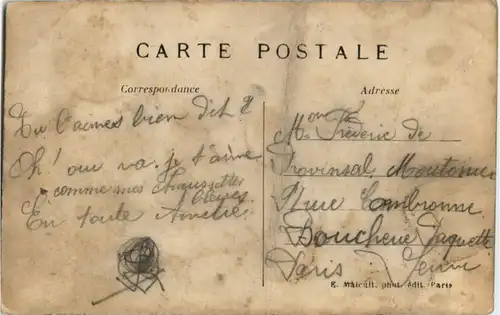 CARTE POSTALE
Correspondance
Adresse
Tu l'aimes bien dit ?
Oh! oui va. je t'aime
comme mes chaussettes
bleues.
En toute Amitié.
Mon Fréderic de
Provinsal Moutonier
Place Cambronne
Boucherie Paquette
Paris Seine
E. Malcuit, phot. édit. Paris